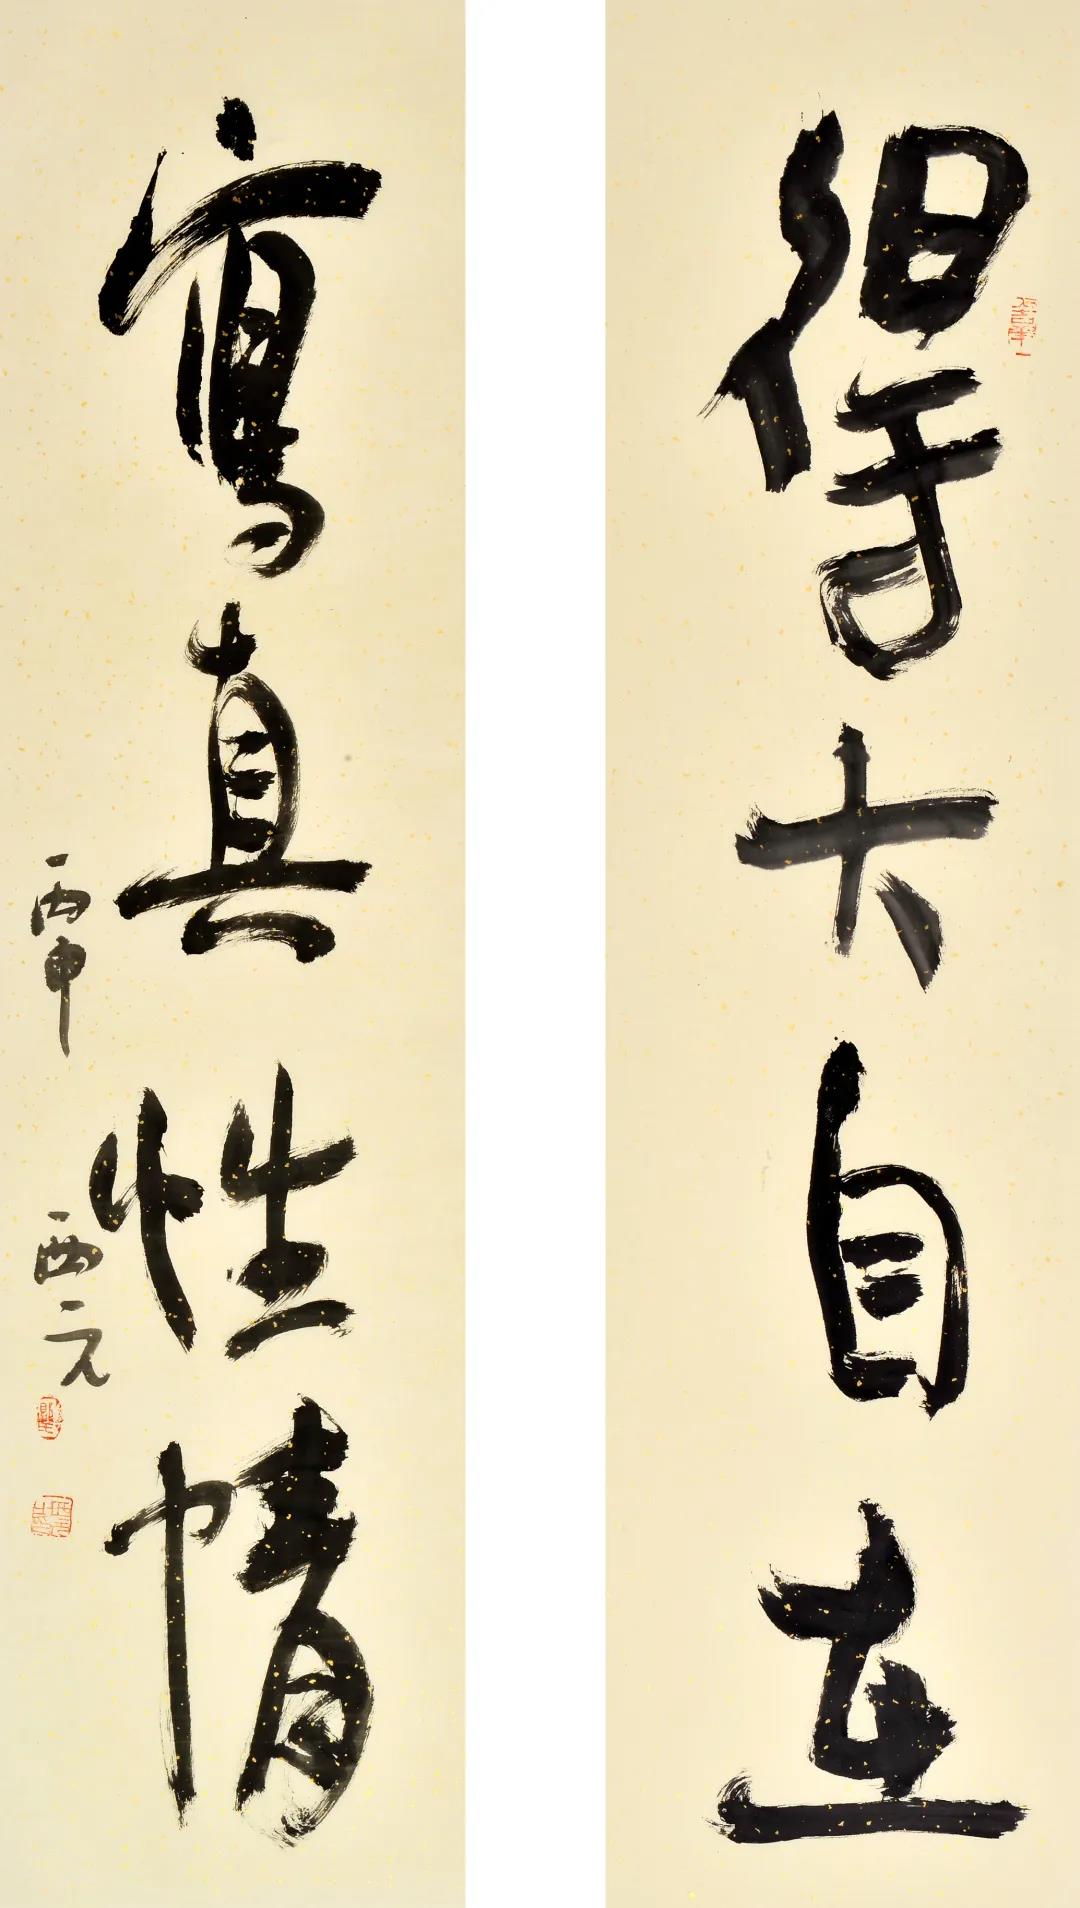 得大自在
寫真性情
丙申
西元